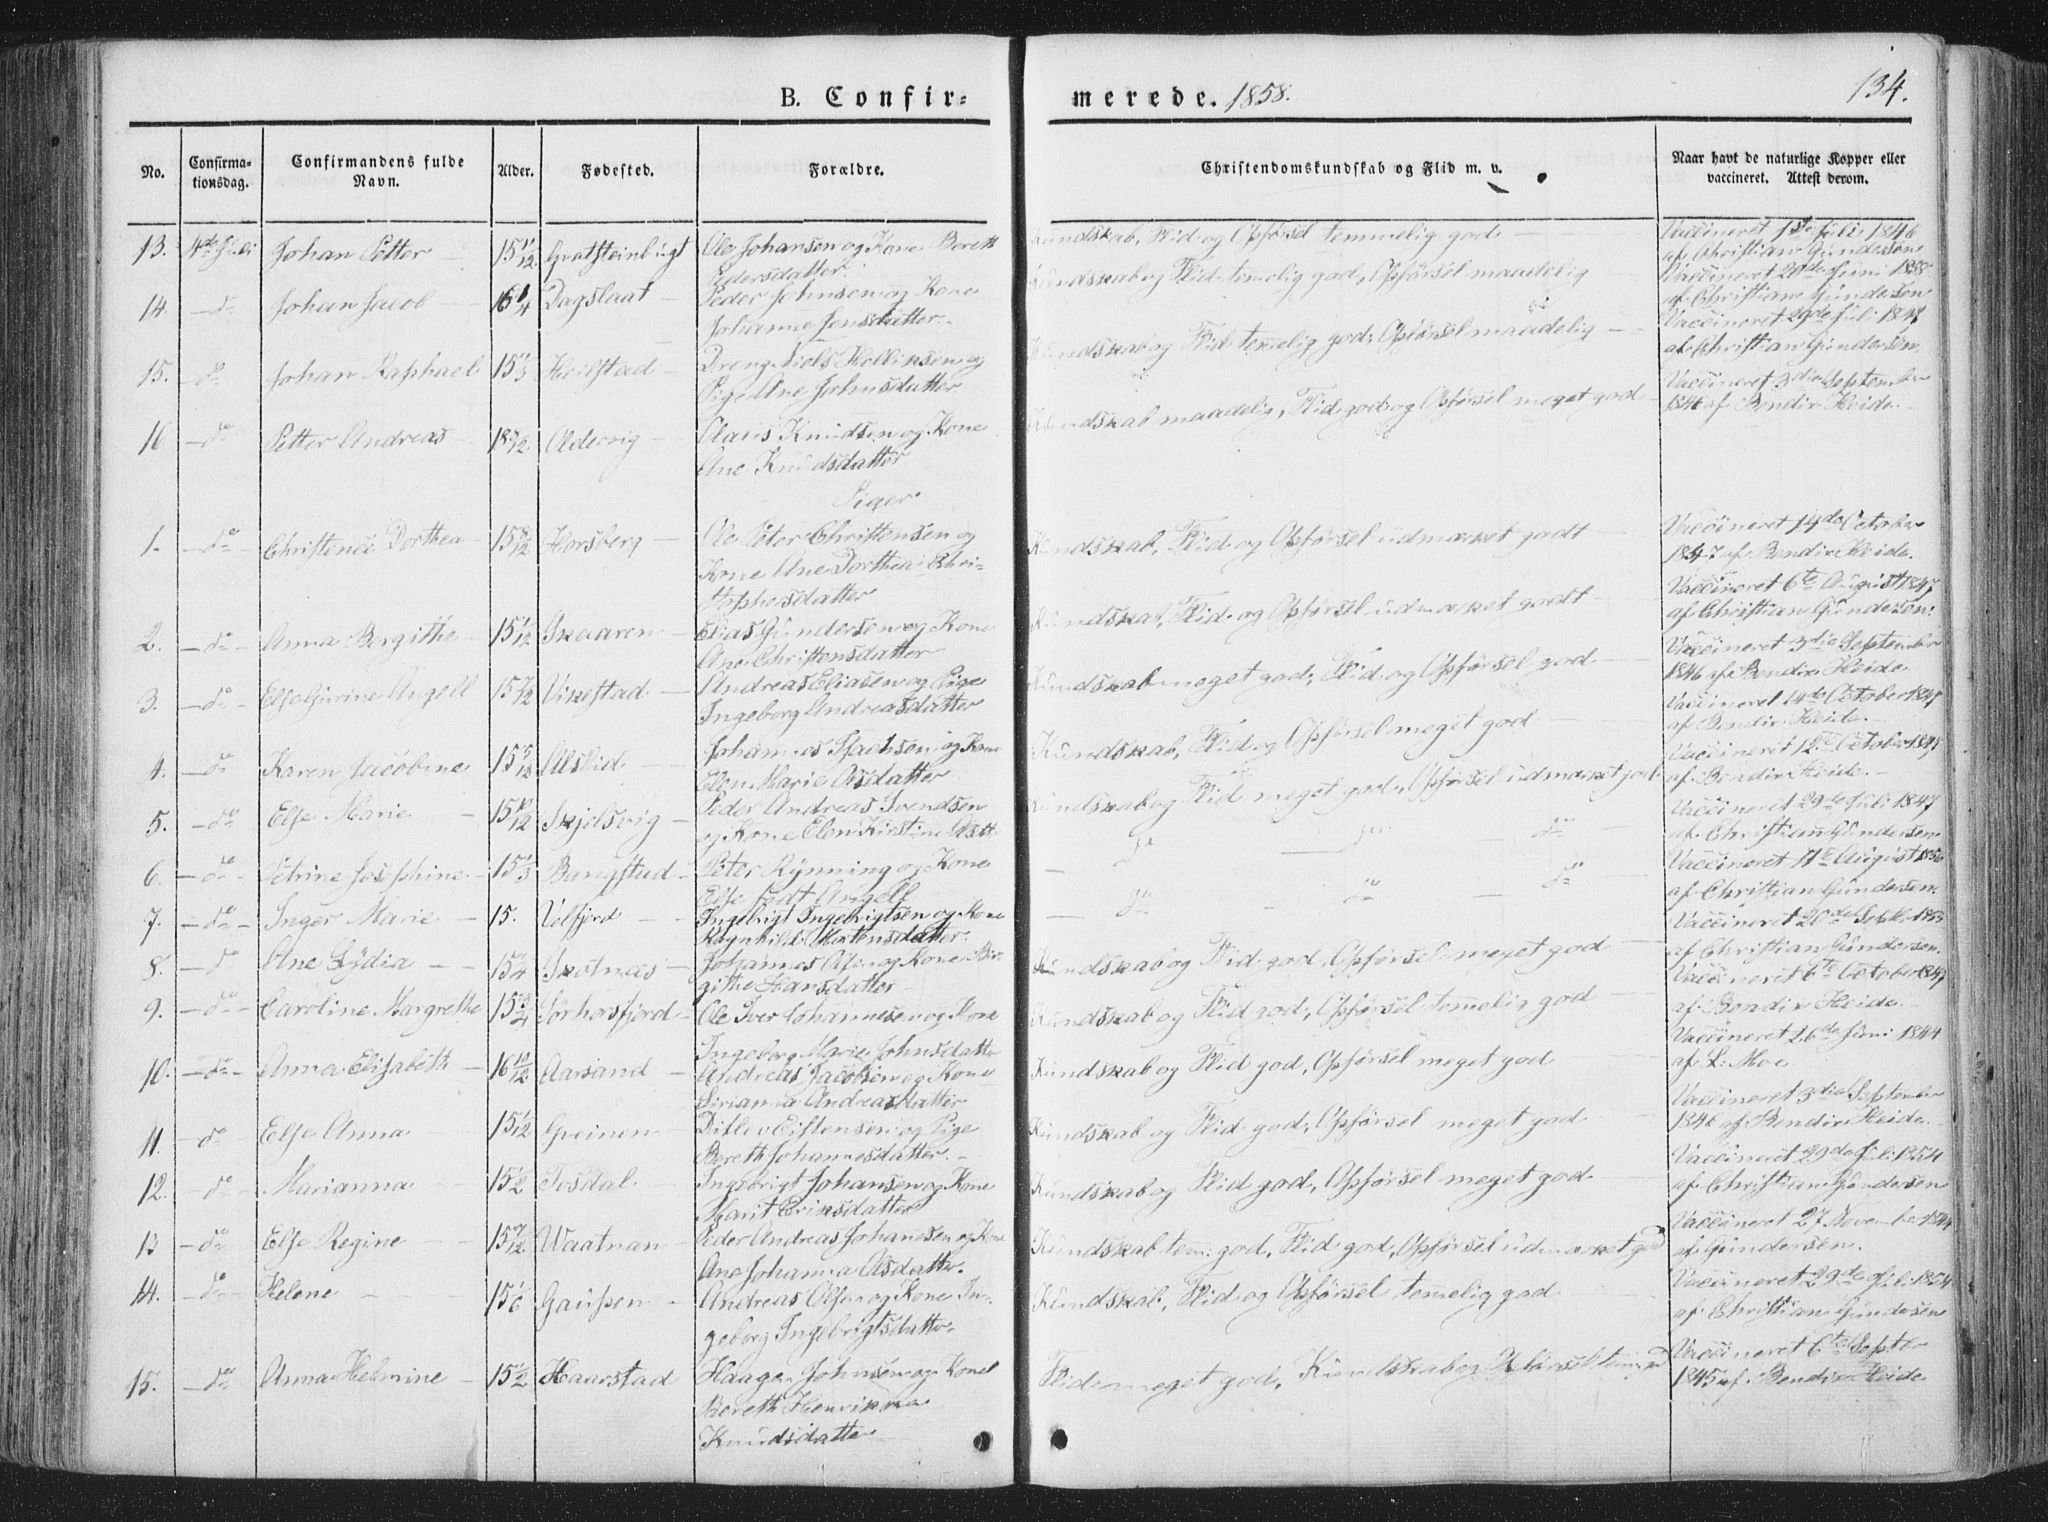 B. Confir=
merede. 1858.
134.
No.
Confirma-
tionsdag.
Confirmandens fulde
Navn.
Alder.
Fødested.
Forældre.
Christendomskundskab og Flid m. v.
Naar havt de naturlige Kopper eller
vaccineret. Attest derom.
13. 4de Juli Johan Petter 15 11/12 Ole Johansen og Kone Bereth
Pedersdatter
Kundskab, Flid og Opførsel temmelig god
Vaccineret 1ste Juli 1846
af Christian Gundersen
14. do Johan Jacob Dagslaat Peder Johnsen og Kone
Johanne Jensdatter
Kundskab og Flid temelig god, Opførsel maadelig
Vaccineret 20de Juni 1858
af Christian Gundersen
15. do Johan Raphael 15 1/3 Heilstad Dreng Niels Kellinksen og
Pige Ane Johnsdatter
Kundskab og Flid temelig god, Opførsel maadelig
Vaccineret 29de Juli 1847
af Christian Gundersen
16 do Petter Andreas Aldervig Claus Knudsen og Kone
Ane Knudsdatter
Kundskab maadelig, Flid god og Opførsel meget god
Vaccineret 3die September
1846 af Bendix Heide.
Piger
1. do Christence Dorthea 15 8/12 Horsberg Ole Peter Christensen og
Kone Ane Dorthea Chri-
stophersdatter
Kundskab, Flid og Opførsel udmærket godt
Vaccineret 14de October
1847 af Bendix Heide.
2. do Anna Bergithe 15 1/12 Skaaren Elias Gundersen og Kone
Ane Christensdatter
Kundskab, Flid og Opførsel udmærket godt
Vaccineret 6te August 1847
af Christian Gundersen.
3. do Else Gurine Angell 15 7/12 Vikestad Andreas Eliasen og Pige
Ingeborg Andreasdatter
Kundskab meget god, Flid og Opførsel god
Vaccineret 3die September
1846 af Bendix Heide
4. do Karen Jacobine 15 5/12 Alslid Johannes Isachsen og Kone
Elen Marie Asdatter
Kundskab, Flid og Opførsel meget god
Vaccineret 14de October 1847
af Bendix Heide.
5. do Else Marie 15 10/12 Skjelsvig Peder Andreas Svendsen
og Kone Elen Kirstine
Kundskab og Flid meget god, Opførsel udmærket god
Vaccineret 12te October 1847
af Bendix Heide.
6. do Petrine Josephine 15 1/3 Bangstad Peter Rynning og Kone
Else født Angell
do do do
Vaccineret 29de Juli 1847
af Christian Gundersen.
7. do Inger Marie 15. Velfjord Ingebrigt Ingebrigtsen og Kone
Ragnhild Mortensdatter.
do do do
Vaccineret 11te August 1856
af Christian Gundersen.
8. do Ane Lydia 15 1/4 Skotnes Johannes Olsen og Kone Bir-
githe Hansdatter
Kundskab og Flid god, Opførsel meget god
Vaccineret 20de Septbr 1853
af Christian Gundersen.
9. do Caroline Margrethe 15 3/4 Sørhorsfjord Ole Iver Johannesen og Kone
Ingeborg Marie Johnsdatter
Kundskab og Flid god, Opførsel temelig god
Vaccineret 6te October 1847
af Bendix Heide.
10. do Anna Elisabeth 16 10/12 Aarsand Andreas Jacobsen og Kone
Andreasdatter
Kundskab og Flid god, Opførsel meget god
Vaccineret 26de Juni 1844
af L. Moe
11. do Else Anna 15 1/12 Greinen Ditlev Eistensen og Pige
Bereth Johannesdatter.
Kundskab og Flid god, Opførsel meget god
Vaccineret 3die September
1846 af Bendix Heide.
12. do Marianna 15 1/2 Tosdal Ingebrigt Johansen og Kone
Marit Eriksdatter
Kundskab og Flid god, Opførsel meget god
Vaccineret 29de Juli 1854
af Christian Gundersen
13 do Else Regine 15 7/12 Waatnan Peder Andreas Johannsen og Kone
Ane Johanna Asdatter.
Kundskab tem: god, Flid god, Opførsel udmærket god
Vaccineret 27 November 1844
af Gundersen.
14. do Helene 15 1/6 Gaupen Andreas Olsen og Kone In-
geborg Ingebrigtsdatter
Kundskab, Flid og Opførsel temelig god
Vaccineret 29de Juli 1854
af Christian Gundersen
15. do Anna Helmine 15 1/2 Haarstad Haagen Johnsen og Kone
Bereth Henrikka
Knudsdatter
Flid meget god, Kundskab og Opførsel tem: god
Vaccineret 6te Septbr
1845 af Bendix Heide